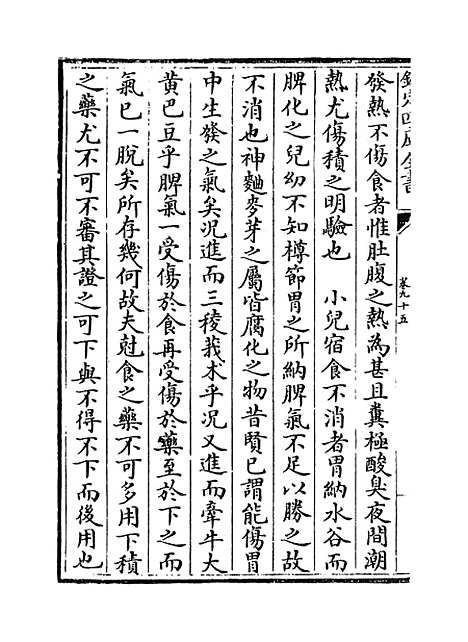 欽定四庫全書
卷九十五
發熱不傷食者惟肚腹之熱為甚且糞極酸臭夜間潮
熱尤傷積之明驗也　小兒宿食不消者胃納水谷而
脾化之兒幼不知樽節胃之所納脾氣不足以勝之故
不消也神麯麥芽之屬皆腐化之物昔賢已謂能傷胃
中生發之氣矣況進而三稜莪术乎況又進而牽牛大
黄巴豆乎脾氣一受傷於食再受傷於藥至於下之而
氣已一脫矣所存幾何故夫尅食之藥不可多用下積
之藥尤不可不審其證之可下與不得不下而後用也